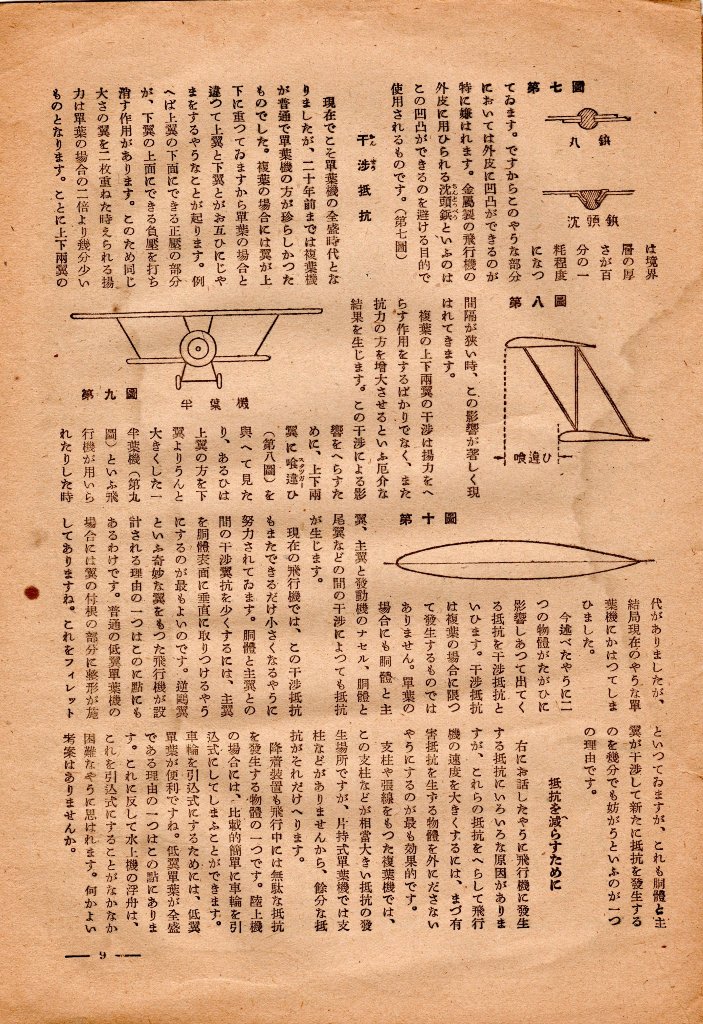 第七圖
丸鋲
沈頭鋲
は境界
層の厚
さが百
分の一
粍程度
になつ
てゐます。ですからこのやうな部分
においては外皮に凹凸ができるのが
特に嫌はれます。金屬製の飛行機の
外皮に用ひられる沈頭鋲といふのは
この凹凸ができるのを避ける目的で
使用されるものです。(第七圖)
干渉抵抗
現在でこそ單葉機の全盛時代とな
りましたが、二十年前までは複葉機
が普通で單葉機の方が珍らしかつた
ものでした。複葉の場合には翼が上
下に重つてゐますから單葉の場合と
違つて上翼と下翼とがお互ひにじや
まをするやうなことが起ります。例
へば上翼の下面にできる正壓の部分
が、下翼の上面にできる負壓を打ち
消す作用があります。このため同じ
大さの翼を二枚重ねた時えられる揚
力は單葉の場合の二倍より幾分少い
ものとなります。ことに上下兩翼の
第八圖
喰違ひ
間隔が狹い時、この影響が著しく現
はれてきます。
複葉の上下兩翼の干渉は揚力をへ
らす作用をするばかりでなく、また
抗力の方を增大させるといふ厄介な
結果を生じます。この干渉による影
第九圖
半葉機
響をへらすた
めに、上下兩
翼に喰違ひ
スタッガー
(第八圖)を
與へて見た
り、あるひは
上翼の方を下
翼よりうんと
大きくした一
半葉機(第九
圖)といふ飛
行機が用いら
れたりした時
第十圖
代がありましたが、
結局現在のやうな單
葉機にかはつてしま
ひました。
今述べたやうに二
つの物體がたがひに
影響しあつて出てく
る抵抗を干渉抵抗と
いひます。干渉抵抗
は複葉の場合に限つ
て發生するものでは
ありません。單葉の
場合にも胴體と主
翼、主翼と發動機のナセル、胴體と
尾翼などの間の干渉によつても抵抗
が生じます。
現在の飛行機では、この干渉抵抗
もまたできるだけ小さくなるやうに
努力されてゐます。胴體と主翼との
間の干渉翼抗を少くするには、主翼
を胴體表面に垂直に取りつけるやう
にするのが最もよいのです。逆鷗翼
といふ奇妙な翼をもつた飛行機が設
計される理由の一つはこの點にも
あるわけです。普通の低翼單葉機の
場合には翼の付根の部分に整形が施
してありますね。これをフィレット
といつてゐますが、これも胴體と主
翼が干渉して新たに抵抗を發生する
のを幾分でも妨がうといふのが一つ
の理由です。
抵抗を減らすために
右にお話したやうに飛行機に發生
する抵抗にいろいろな原因がありま
すが、これらの抵抗をへらして飛行
機の速度を大きくするには、まづ有
害抵抗を生ずる物體を外にださない
やうにするのが最も効果的です。
支柱や張線をもつた複葉機では、
この支柱などが相當大きい抵抗の發
生場所ですが、片持式單葉機では支
柱などがありませんから、餘分な抵
抗がそれだけへります。
降着裝置も飛行中には無駄な抵抗
を發生する物體の一つです。陸上機
の場合には、比較的簡單に車輪を引
込式にしてしまふことができます。
車輪を引込式にするためには、低翼
單葉が便利ですね。低翼單葉が全盛
である理由の一つはこの點にありま
す。これに反して水上機の浮舟は、
これを引込式にすることがなかなか
困難なやうに思はれます。何かよい
考案はありませんか。
9